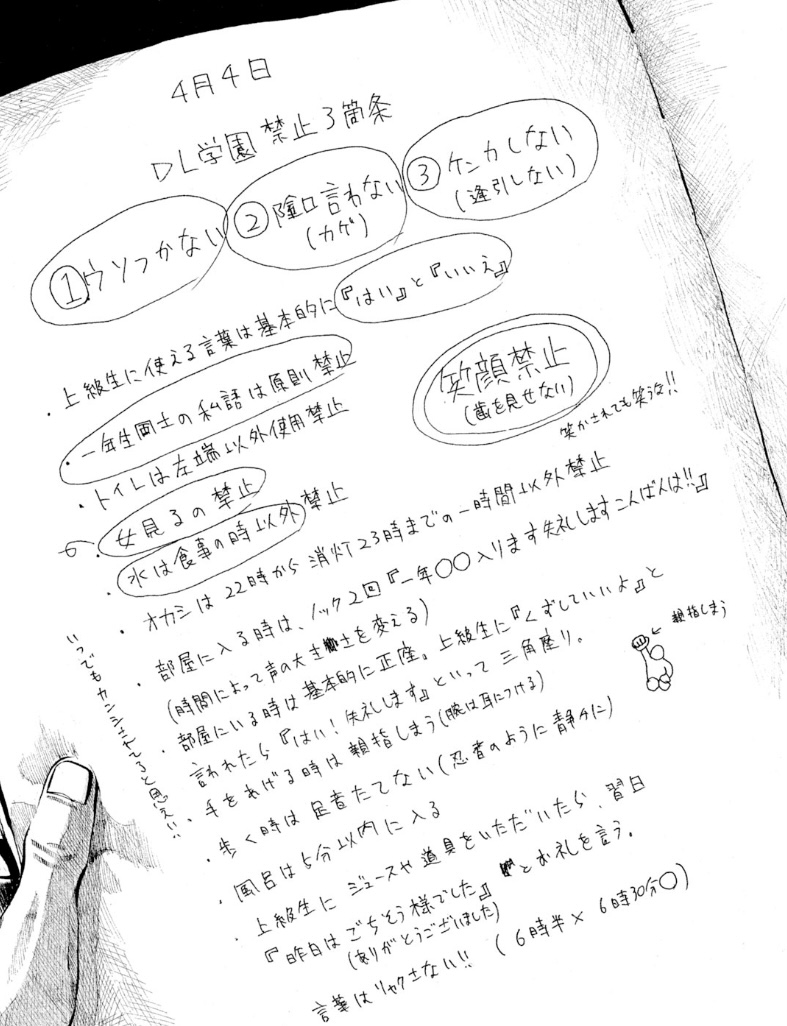 4月4日
DL学園 禁止3箇条
①ウソつかない
②陰口言わない
(カゲ)
③ケンカしない
(逢引しない)
・上級生に使える言葉は基本的に『はい』と『いいえ』
・一年生同士の私語は原則禁止
笑顔禁止
(歯を見せない)
笑かされても笑うな!!
・トイレは左端以外使用禁止
・女見るの禁止
・水は食事の時以外禁止
・オカシは22時から消灯23時までの一時間以外禁止
・部屋に入る時は、ノック2回『一年〇〇入ります失礼しますこんばんは!!』
(時間によって声の大きさを変える)
・部屋にいる時は基本的に正座。上級生に『くずしていいよ』と
言われたら『はい!失礼します』といって三角座り。
・手をあげる時は親指しまう(腕は耳につける)
親指しまう
・歩く時は足音たてない(忍者のように静かに)
・風呂は5分以内に入る
・上級生にジュースや道具をいただいたら、翌日
『昨日はごちそう様でした』とお礼を言う。
(ありがとうございました)
言葉はリャクさない!! (6時半× 6時30分〇)
いつでもカンシされてると思え!!